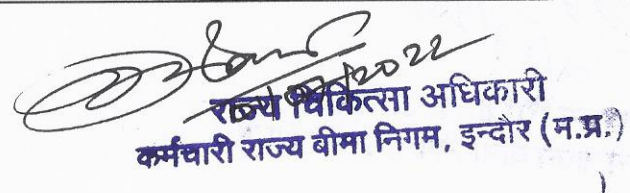 राज्य चिकित्सा अधिकारी
कर्मचारी राज्य बीमा निगम, इन्दौर (म.प्र.)